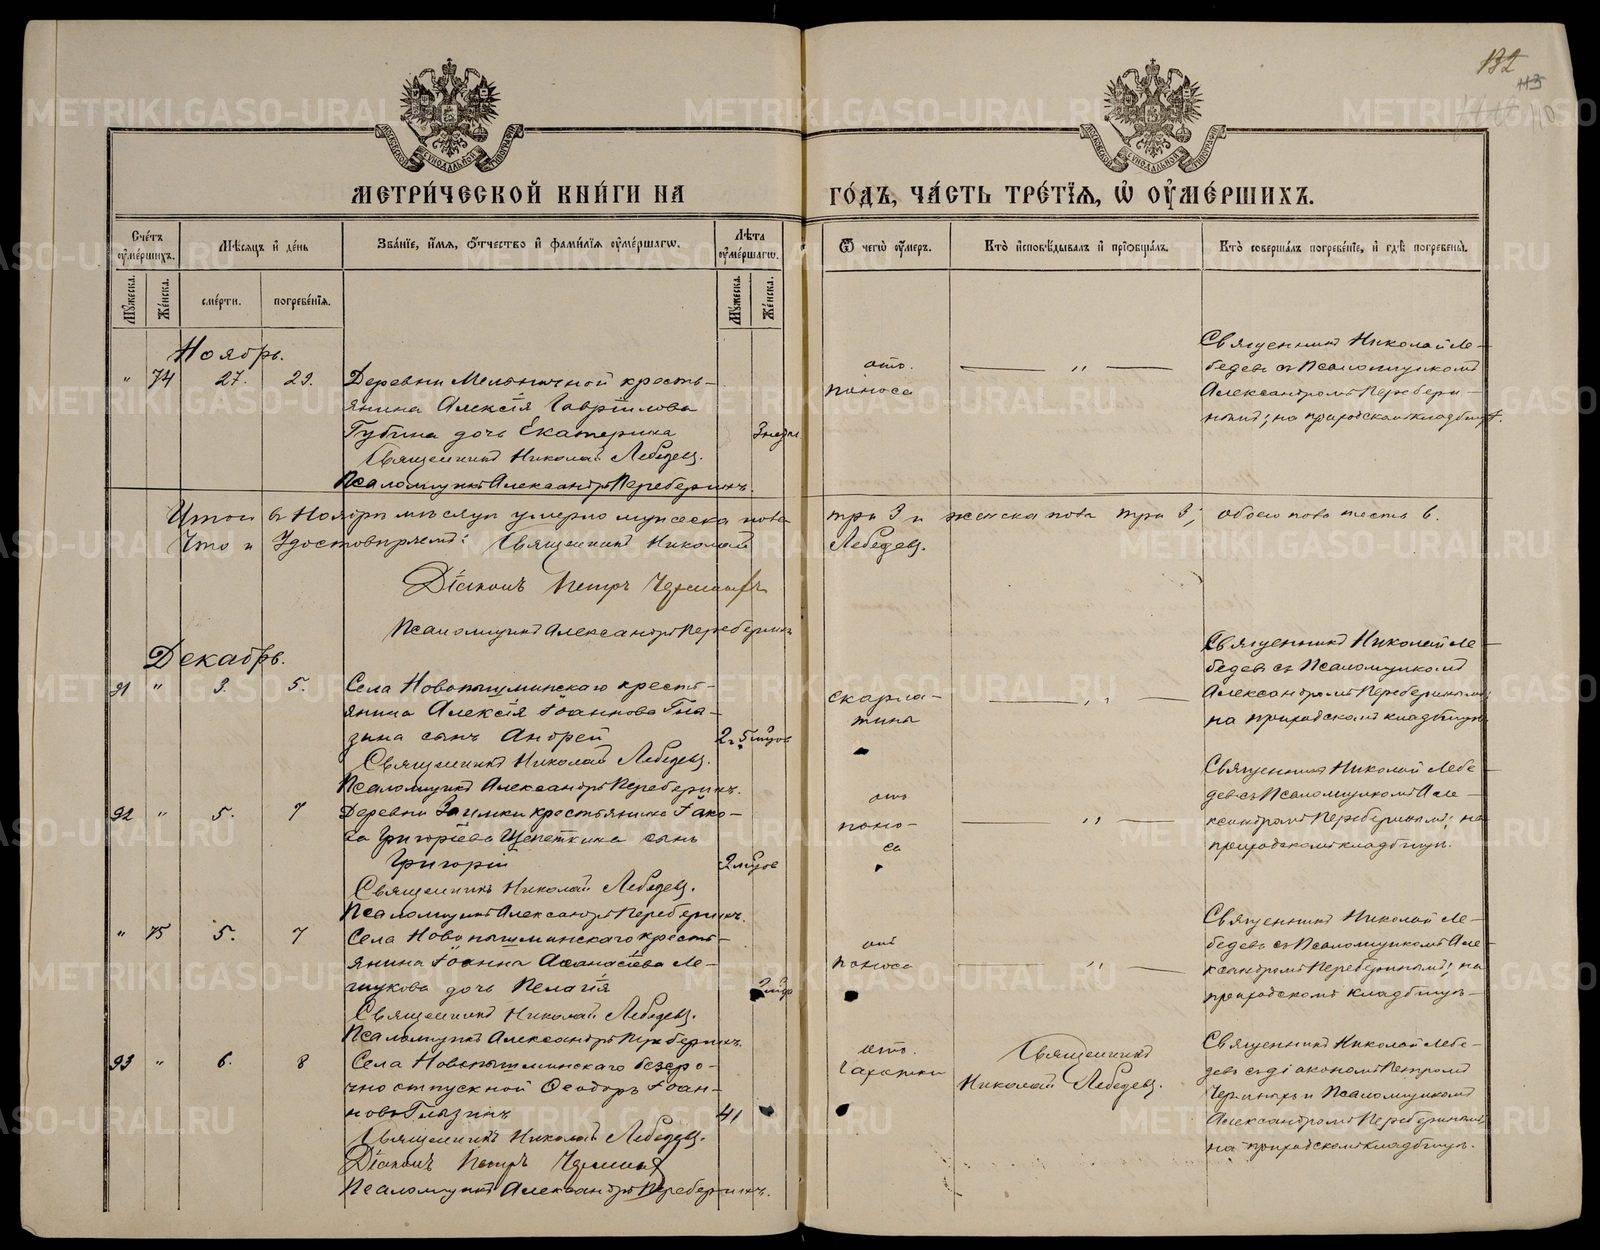 132
113
110
МЕТРИ́ЧЕСКОЙ КНИ́ГИ НА ГО́ДЪ, ЧА́СТЬ ТРЕ́ТЇЯ, Ѡ҆ ОУ҆МЕ́РШИХЪ.
Сче́тъ оу҆ме́ршихъ.
Мѣ́сяцъ и҆ де́нь
Зва́нїе, и҆́мя, ѻ҆́тчество и҆ фами́лїя оу҆ме́ршагѡ.
Лѣ́та оу҆ме́ршагѡ.
Ѿ чегѡ̀ оу҆́меръ.
Кто̀ и҆сповѣ́дывалъ и҆ прїѡбща́лъ.
Кто̀ соверша́лъ погребе́нїе, и҆ гдѣ̀ погребены̀.
Мꙋ́жеска.
Же́нска.
сме́рти.
погребе́нїя.
Мꙋ́жеска.
Же́нска.
Ноябрь.
" 74 27. 29.
Деревни Мельничной кресть-
янина Алексія Гавріилова
Губина дочь Екатерина
3 недѣли
Священникъ Николай Лебедевъ.
Псаломщикъ Александръ Переберинъ.
отъ
поноса
— " —
Священникъ Николай Ле-
бедевъ съ Псаломщикомъ
Александромъ Перебери-
нымъ; на приходскомъ кладбищѣ.
Итого въ Ноябрѣ мѣсяцѣ умерло мужеска пола три 3 и женска пола три 3, обоего пола шесть 6.
Что и удостовѣряемъ: Священникъ Николай Лебедевъ.
Діаконъ Петръ
Псаломщикъ Александръ Переберинъ
Декабрь.
91 " 3. 5.
Села Новопышминскаго кресть-
янина Алексія Іоаннова Гла-
зина сынъ Андрей
Священникъ Николай Лебедевъ.
Псаломщикъ Александръ Переберинъ.
скарла-
тины
— " —
Священникъ Николай Ле-
бедевъ съ Псаломщикомъ
Александромъ Переберинымъ;
на приходскомъ кладбищѣ
92 " 5. 7
Деревни Заимки крестьянина Іако-
ва Григоріева Щепеткина сынъ
Григорій
2 мѣсяцевъ
Священникъ Николай Лебедевъ.
Псаломщикъ Александръ Переберинъ.
отъ
поно-
са
— " —
Священникъ Николай Лебе-
девъ съ Псаломщикомъ Але-
ксандромъ Переберинымъ; на
приходскомъ кладбищѣ.
" 75 5. 7
Села Новопышминскаго кресть-
янина Іоанна Аѳанасіева Ле-
щукова дочь Пелагія
Священникъ Николай Лебедевъ.
Псаломщикъ Александръ Переберинъ.
отъ
поноса
— " —
Священникъ Николай Ле-
бедевъ съ Псаломщикомъ Але-
ксандромъ Переберинымъ; на
приходскомъ кладбищѣ
93 " 6. 8
Села Новопышминскаго безсро-
чно отпускной Ѳеодоръ Іоан-
новъ Глазинъ
41
Священникъ Николай Лебедевъ.
Діаконъ Петръ
Псаломщикъ Александръ Переберинъ.
отъ
чахотки
Священникъ
Николай Лебедевъ.
Священникъ Николай Лебе-
девъ съ діакономъ Петромъ
и Псаломщикомъ
Александромъ Переберинымъ
на приходскомъ кладбищѣ.
METRIKI.GASO-URAL.RU